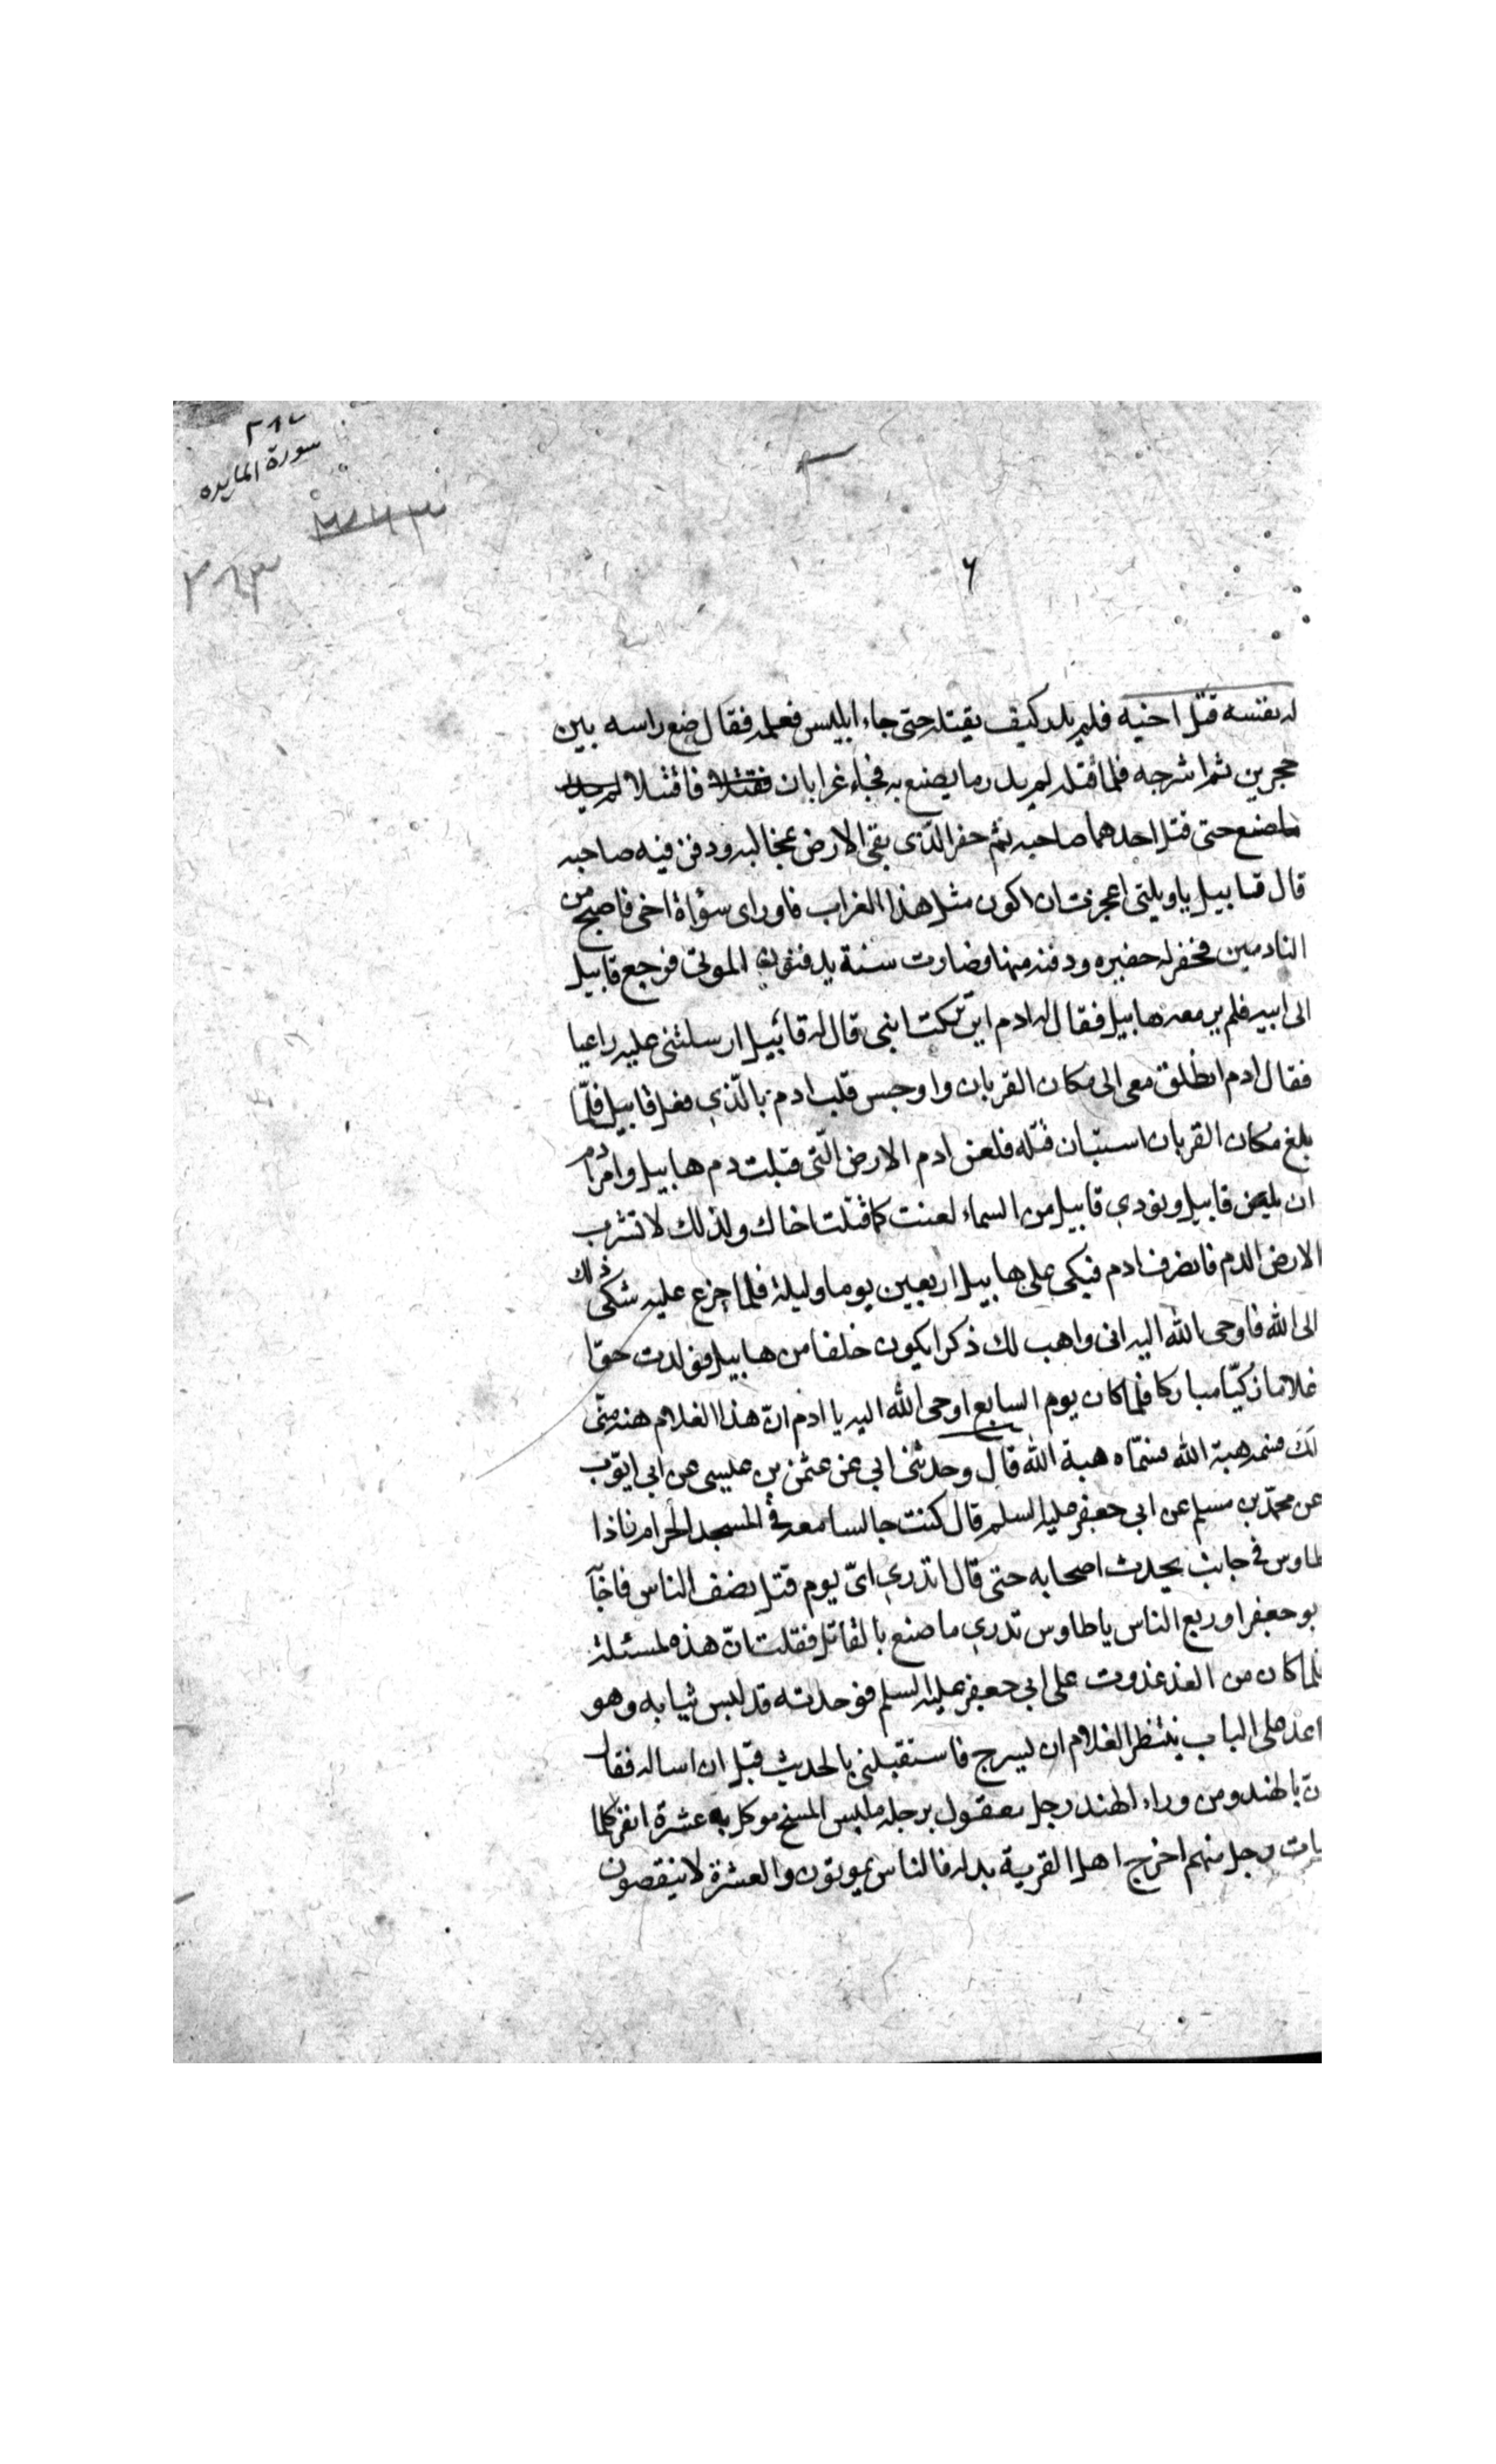 ٣٨٢
سورة المايده
٣٨٣
٦
له نفسه قتل اخيه فلم يدر كيف يقتله حتى جاء ابليس فعلمه فقال ضع راسه بين
حجرين ثم اشرجه فلما قتله لم يدر ما يصنع به فجاء غرابان فقتلا فاقتتلا
حتى قتل احدهما صاحبه ثم حفر الذى بقى الارض بمخالبه ودفن فيه صاحبه
قال قابيل يا ويلتى اعجزت ان اكون مثل هذا الغراب فاورى سؤاة اخى فاصبح من
النادمين فحفر له حفيره ودفنه فيها فصارت سنة يدفنون الموتى فرجع قابيل
الى ابيه فلم ير معه هابيل فقال له ادم اين تركت ابنى قال له قابيل ارسلتنى عليه راعيا
فقال ادم انطلق معى الى مكان القربان واوجس قلب ادم بالّذي فعل قابيل فلمّا
بلغ مكان القربان استبان قتله فلعن ادم الارض الّتى قبلت دم هابيل وامر ادم
ان يلعن قابيل ونودي قابيل من السماء لعنت كما قتلت اخاك ولذلك لا تشرب
الارض الدم فانصرف ادم فبكى على هابيل اربعين يوما وليلة فلما جزع عليه شكى ذلك
الى الله فاوحى الله اليه انى واهب لك ذكرا يكون خلفا من هابيل فولدت حوّا
غلاما زكيّا مباركا فلما كان يوم السابع اوحى الله اليه يا ادم انّ هذا الغلام هبة منّى
لك فسمه هبة الله فسمّاه هبة الله قال وحدثنى ابي عن عثمن بن عليسى عن ابى ايّوب
عن محمّد بن مسلم عن ابي جعفر عليه السلم قال كنت جالسا معه فى المسجد الحرام فاذا
طاوس فى جانب يحدث اصحابه حتى قال اتدري اىّ يوم قتل نصف الناس فاجاَ
بو جعفر او ربع الناس يا طاوس تدري ما صنع بالقاتل فقلت انّ هذه لمسئلة
فلما كان من الغد غدوت على ابي جعفر عليه السلم فوجدته قد لبس ثيابه وهو
اعد على الباب ينتظر الغلام ان يسرج فاستقبلنى بالحديث قبل ان اساله فقال
نّ بالهند ومن وراء الهند رجل معقول برجله يلبس المسح موكل به عشرة انفر كلما
مات رجل منهم اخرج اهل القرية بدله فالناس يموتون والعشرة لا ينقصون